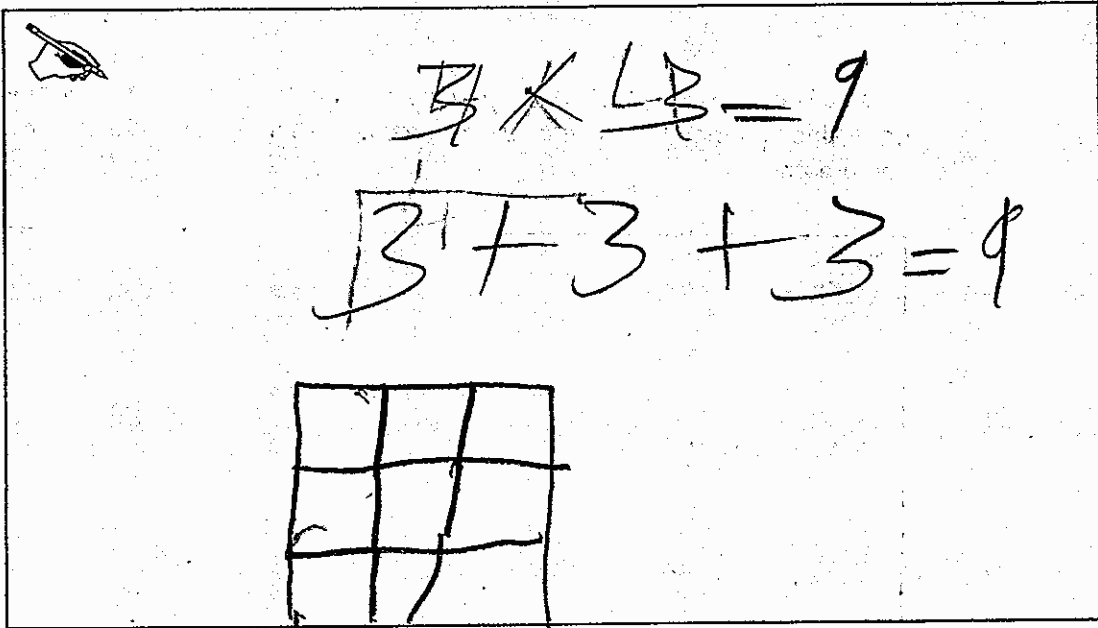 3 × 3 = 9
3 + 3 + 3 = 9